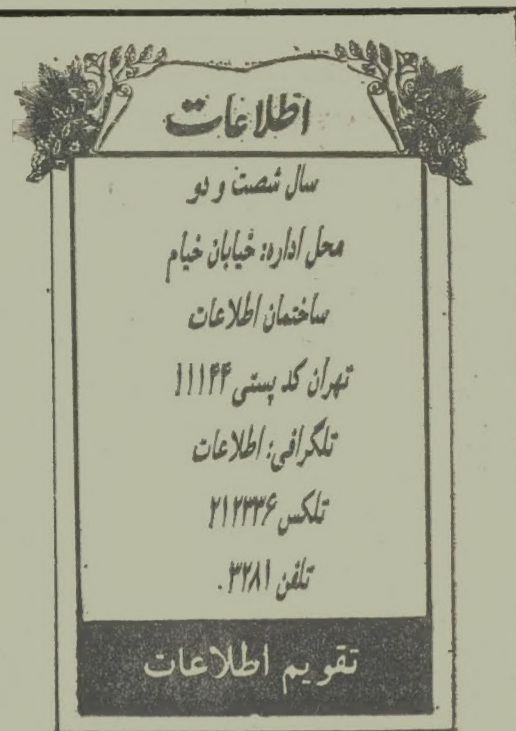 اطلاعات
سال شصت و دو
محل اداره: خیابان خیام
ساختمان اطلاعات
تهران کد پستی ۱۱۱۴۴
تلگرافی: اطلاعات
تلکس ۲۱۲۳۳۶
تلفن ۳۲۸۱.
تقویم اطلاعات